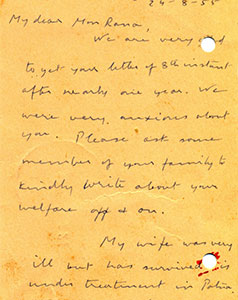 24-8-55
My dear Mon Rana,
We are very glad
to get your letter of 8th instant
after nearly one year. We
were very anxious about
you. Please ask some
member of your family to
kindly write about your
welfare off & on.
My wife was very
ill but has survived is
under treatment in Patna